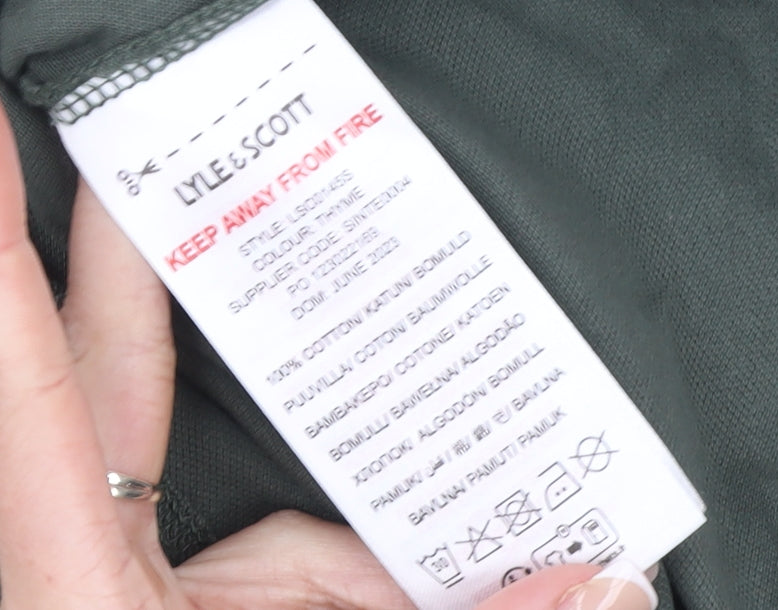 LYLE & SCOTT
KEEP AWAY FROM FIRE
STYLE: LSO0145S
COLOUR: THYME
SUPPLIER CODE: SINTE0004
PO 123022169
DOM: JUNE 2023
100% COTTON/ KATUN/ BOMULD
PUUVILLA/ COTON/ BAUMWOLLE
BAMBAKEPO/ COTONE/ KATOEN
BOMULL/ BAWEŁNA/ ALGODÃO
ХЛОПОК/ ALGODÓN/ BOMULL
PAMUK/ قطن / 棉/ 綿/ 면/ BAVLNA
BAVLNA/ PAMUT/ PAMUK
30